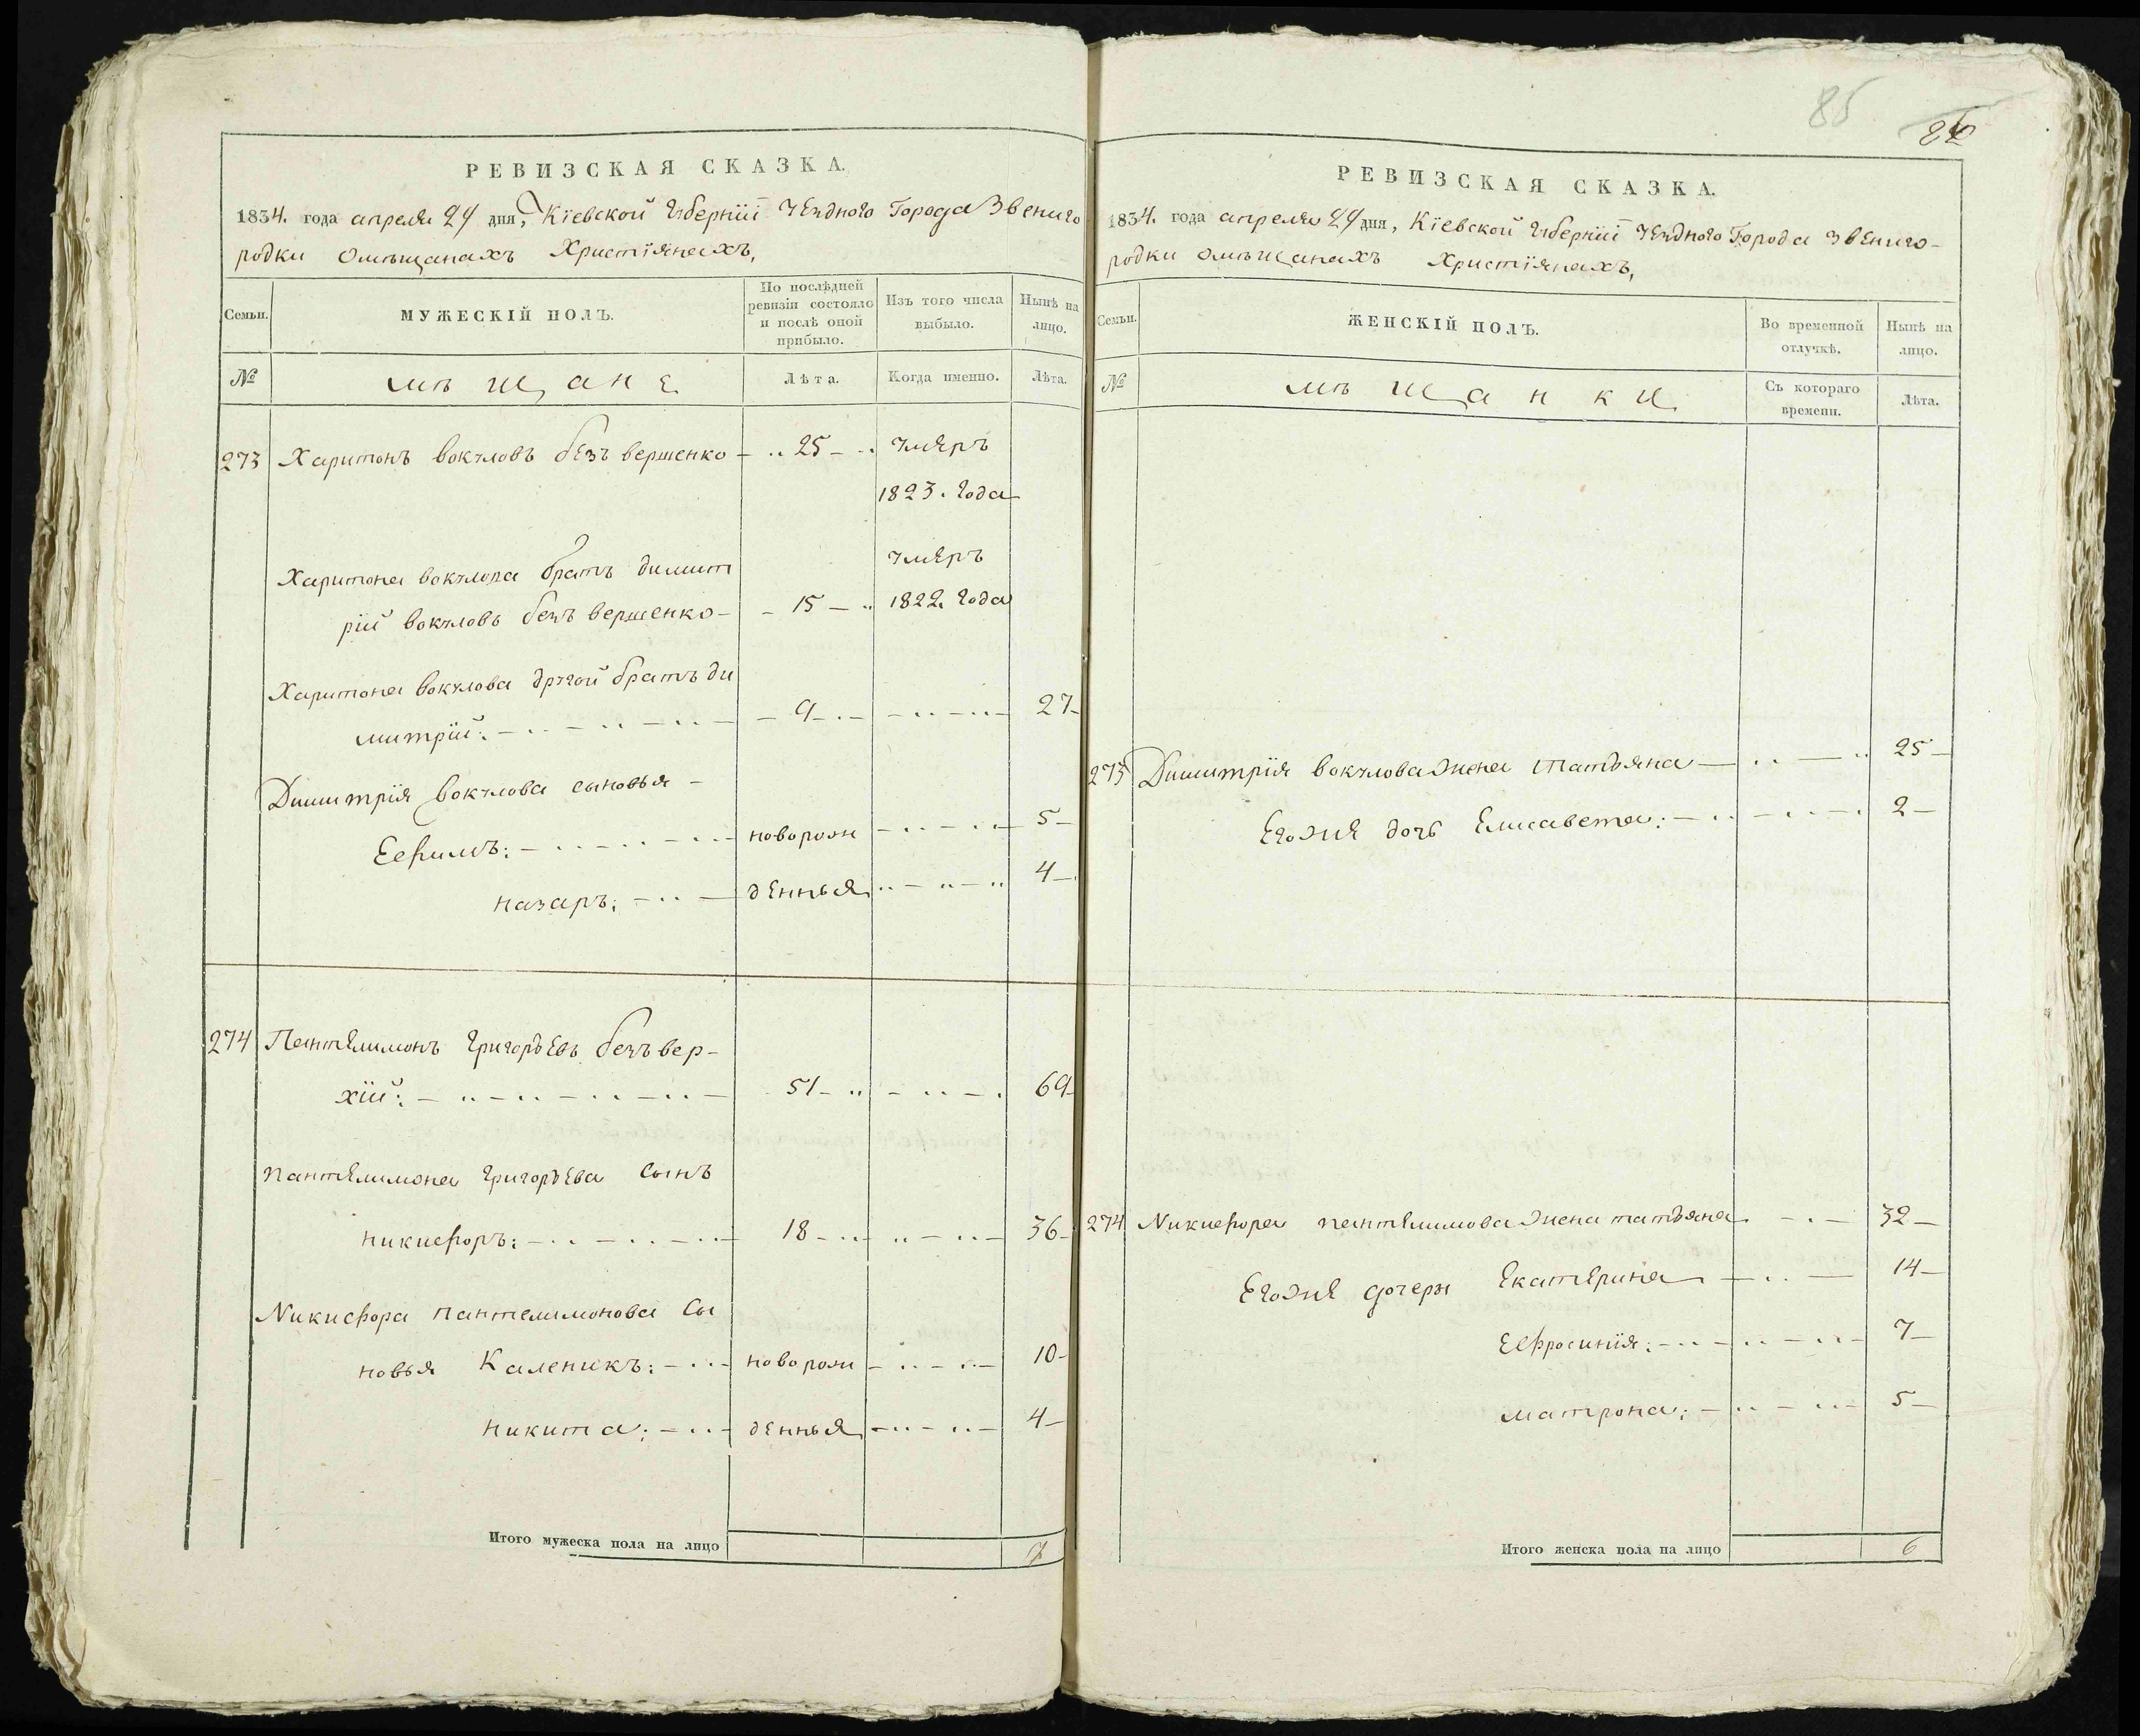 РЕВИЗСКАЯ СКАЗКА.
1834. года апреля 24 дня, Кіевской Губерніи Уезднаго Города Звениго
родки омѣщанахъ Христіянахъ,
Семьи.
МУЖЕСКІЙ ПОЛЪ.
По послѣдней
ревизіи состояло
и послѣ оной
прибыло.
Изъ того числа
выбыло.
Нынѣ на
лицо.
№
мѣщане
Лѣта.
Когда именно.
Лѣта.
273 Харитонъ вокуловъ безъ вершенко - 25 - умеръ
1823. Года
Харитона вокулова братъ димит умеръ
рій вокуловъ безъ вершенко - 15 - 1822. Года
Харитона вокулова другой братъ ди
митрій: - 9 - 27
Димитрія вокулова сыновья -
Еѳимъ: - новорож - 5
назаръ: - денныя - 4
274 Пантелимонъ Григорьевъ безъ вер-
хій: - 51 - 69
Пантелимона Григорьева Сынъ
никиѳоръ: - 18 - 36
Никифора пантелимонова Сы
новья Каленикъ: - новорож - 10
никита: - денныя - 4
Итого мужеска пола на лицо 7
85
РЕВИЗСКАЯ СКАЗКА.
1834. года апреля 24 дня, Кіевской Губерніи Уезднаго Города Звениго-
родки омѣщанахъ Христіянахъ,
Семьи.
ЖЕНСКІЙ ПОЛЪ.
Во временной
отлучкѣ.
Нынѣ на
лицо.
№
мѣщанки
Съ котораго
времени.
Лѣта.
273 Димитрія вокулова жена татьяна - 25
Егоже дочь Елисавета: - 2
274 Никиѳора пантелимова жена татьяна - 32
Егоже дочеры Екатерина - 14
Ефросинія: - 7
матрона: - 5
Итого женска пола на лицо 6